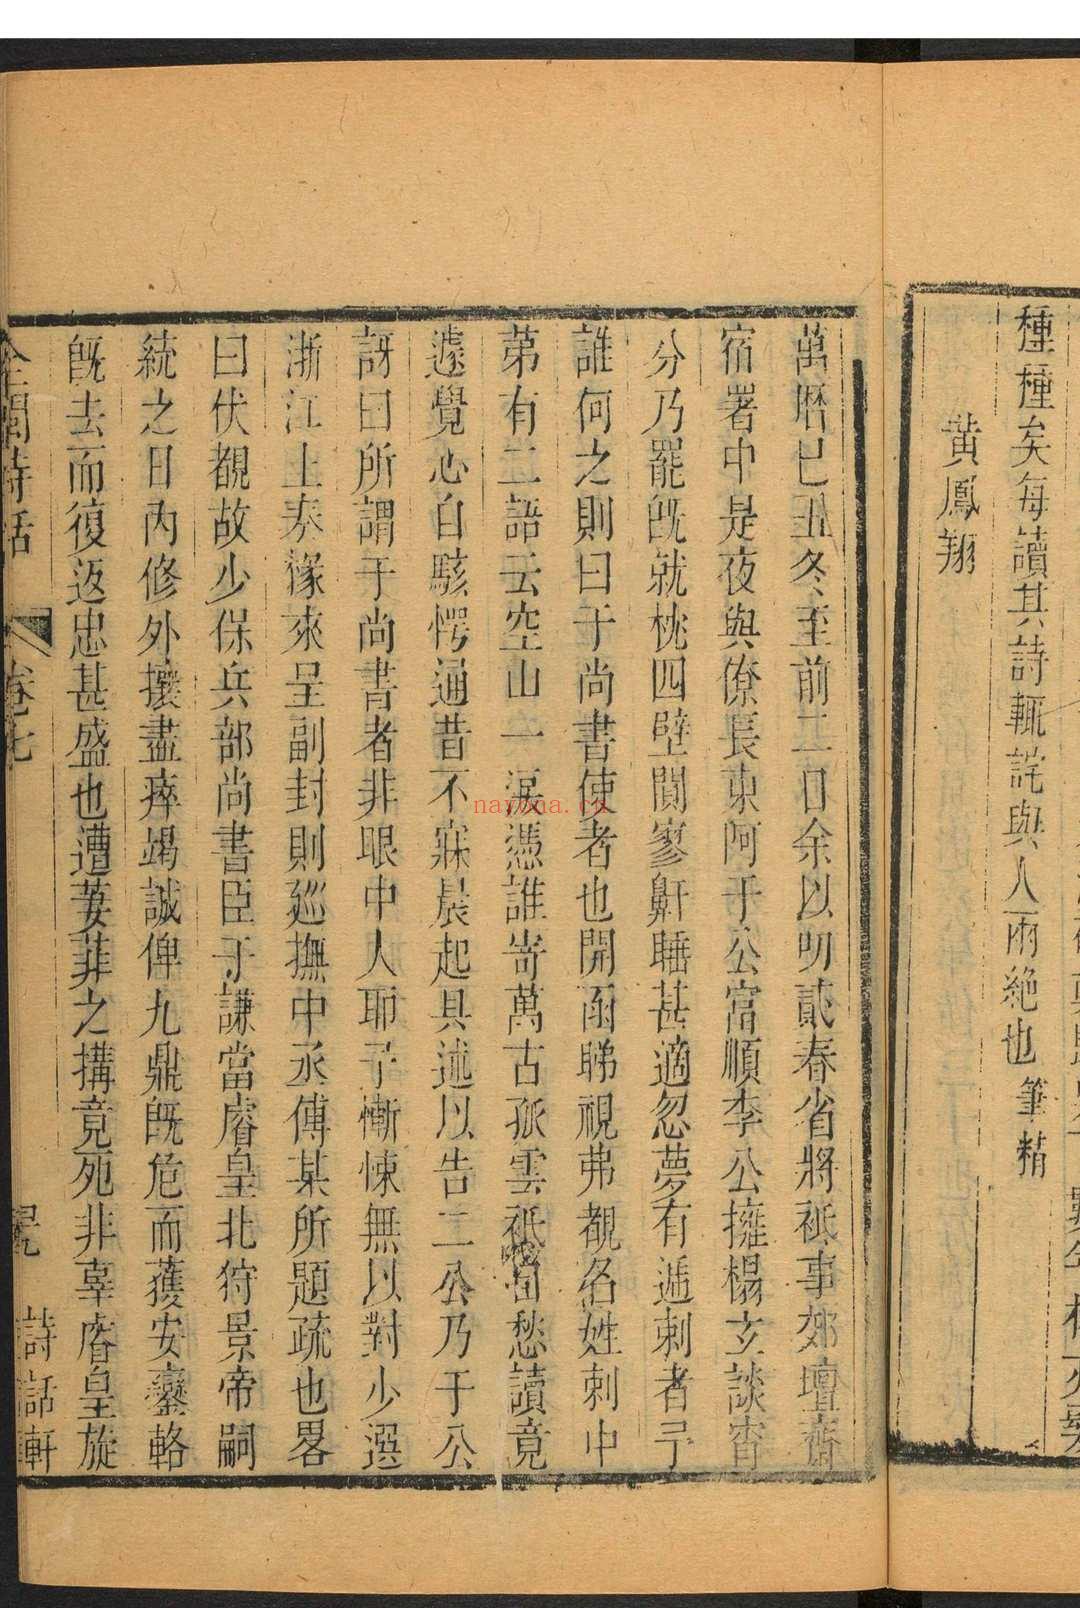 種種矣每讀其詩輒詫與人雨絶也筆精
黃鳳翔
萬曆已丑冬至前二日余以明貳春省將祗事郊壇齋
宿署中是夜與僚長東阿于公富順李公擁榻玄談宵
分乃罷旣就枕四壁闃寥鼾睡甚適忽夢有遞刺者予
誰何之則曰于尚書使者也開函睇視弗覩名姓刺中
第有二語云空山一淚憑誰寄萬古孤雲祗自愁讀竟
遽覺心自駭愕通昔不寐晨起具述以告二公乃于公
訝曰所謂于尚書者非眼中人耶予慚悚無以對少選
浙江上奏掾來呈副封則廵撫中丞傅某所題疏也畧
曰伏覩故少保兵部尚書臣于謙當睿皇北狩景帝嗣
統之日內修外攘盡瘁竭誠俾九鼎旣危而獲安鑾輅
旣去而復返忠甚盛也遭萋菲之搆竟死非辜睿皇旋
全閩詩話
卷七
詩話軒
nayona.cn